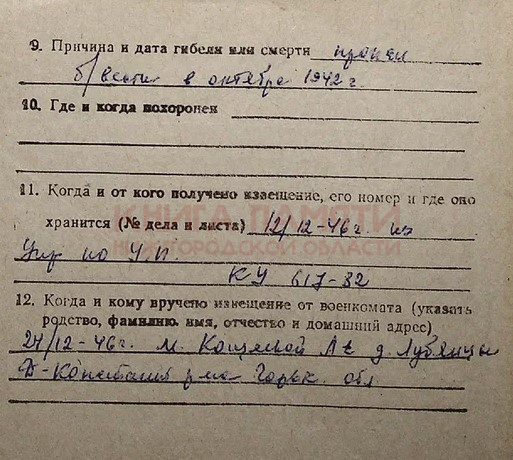 9. Причина и дата гибели или смерти пропал
б/вести в октябре 1942 г.
10. Где и когда похоронен
11. Когда и от кого получено извещение, его номер и где оно
хранится (№ дела и листа) 12/12-46 г. из
Упр по
КУ 617-82
12. Когда и кому вручено извещение от военкомата (указать
родство, фамилию, имя, отчество и домашний адрес)
24/12-46 г. М. Кощеевой А д. Лубянцы
Д-Константин р-на Горьк. обл
КНИГА ПАМЯТИ
НИЖЕГОРОДСКОЙ ОБЛАСТИ